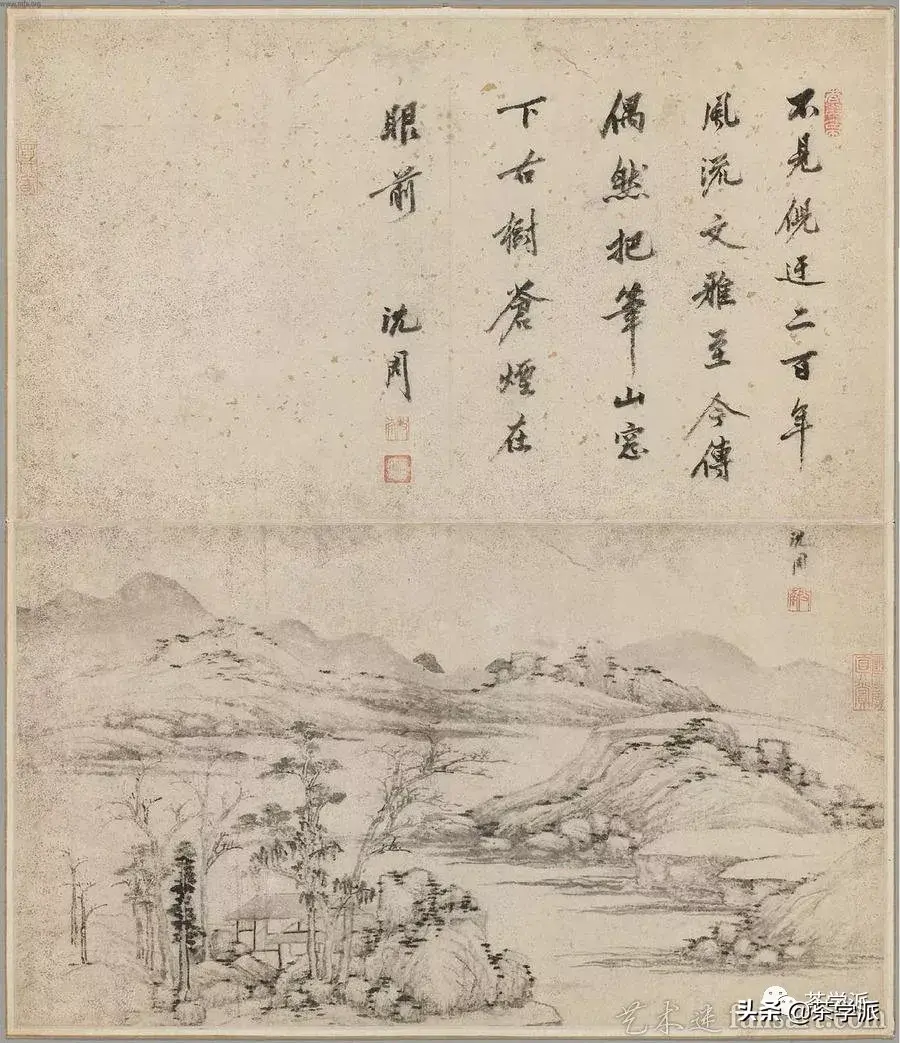 不見倪迂二百年
風流文雅至今傳
偶然把筆山窓
下古樹蒼煙在
眼前
沈周
沈周
茶学派
头条 @茶学派
艺术迷 fansart.com